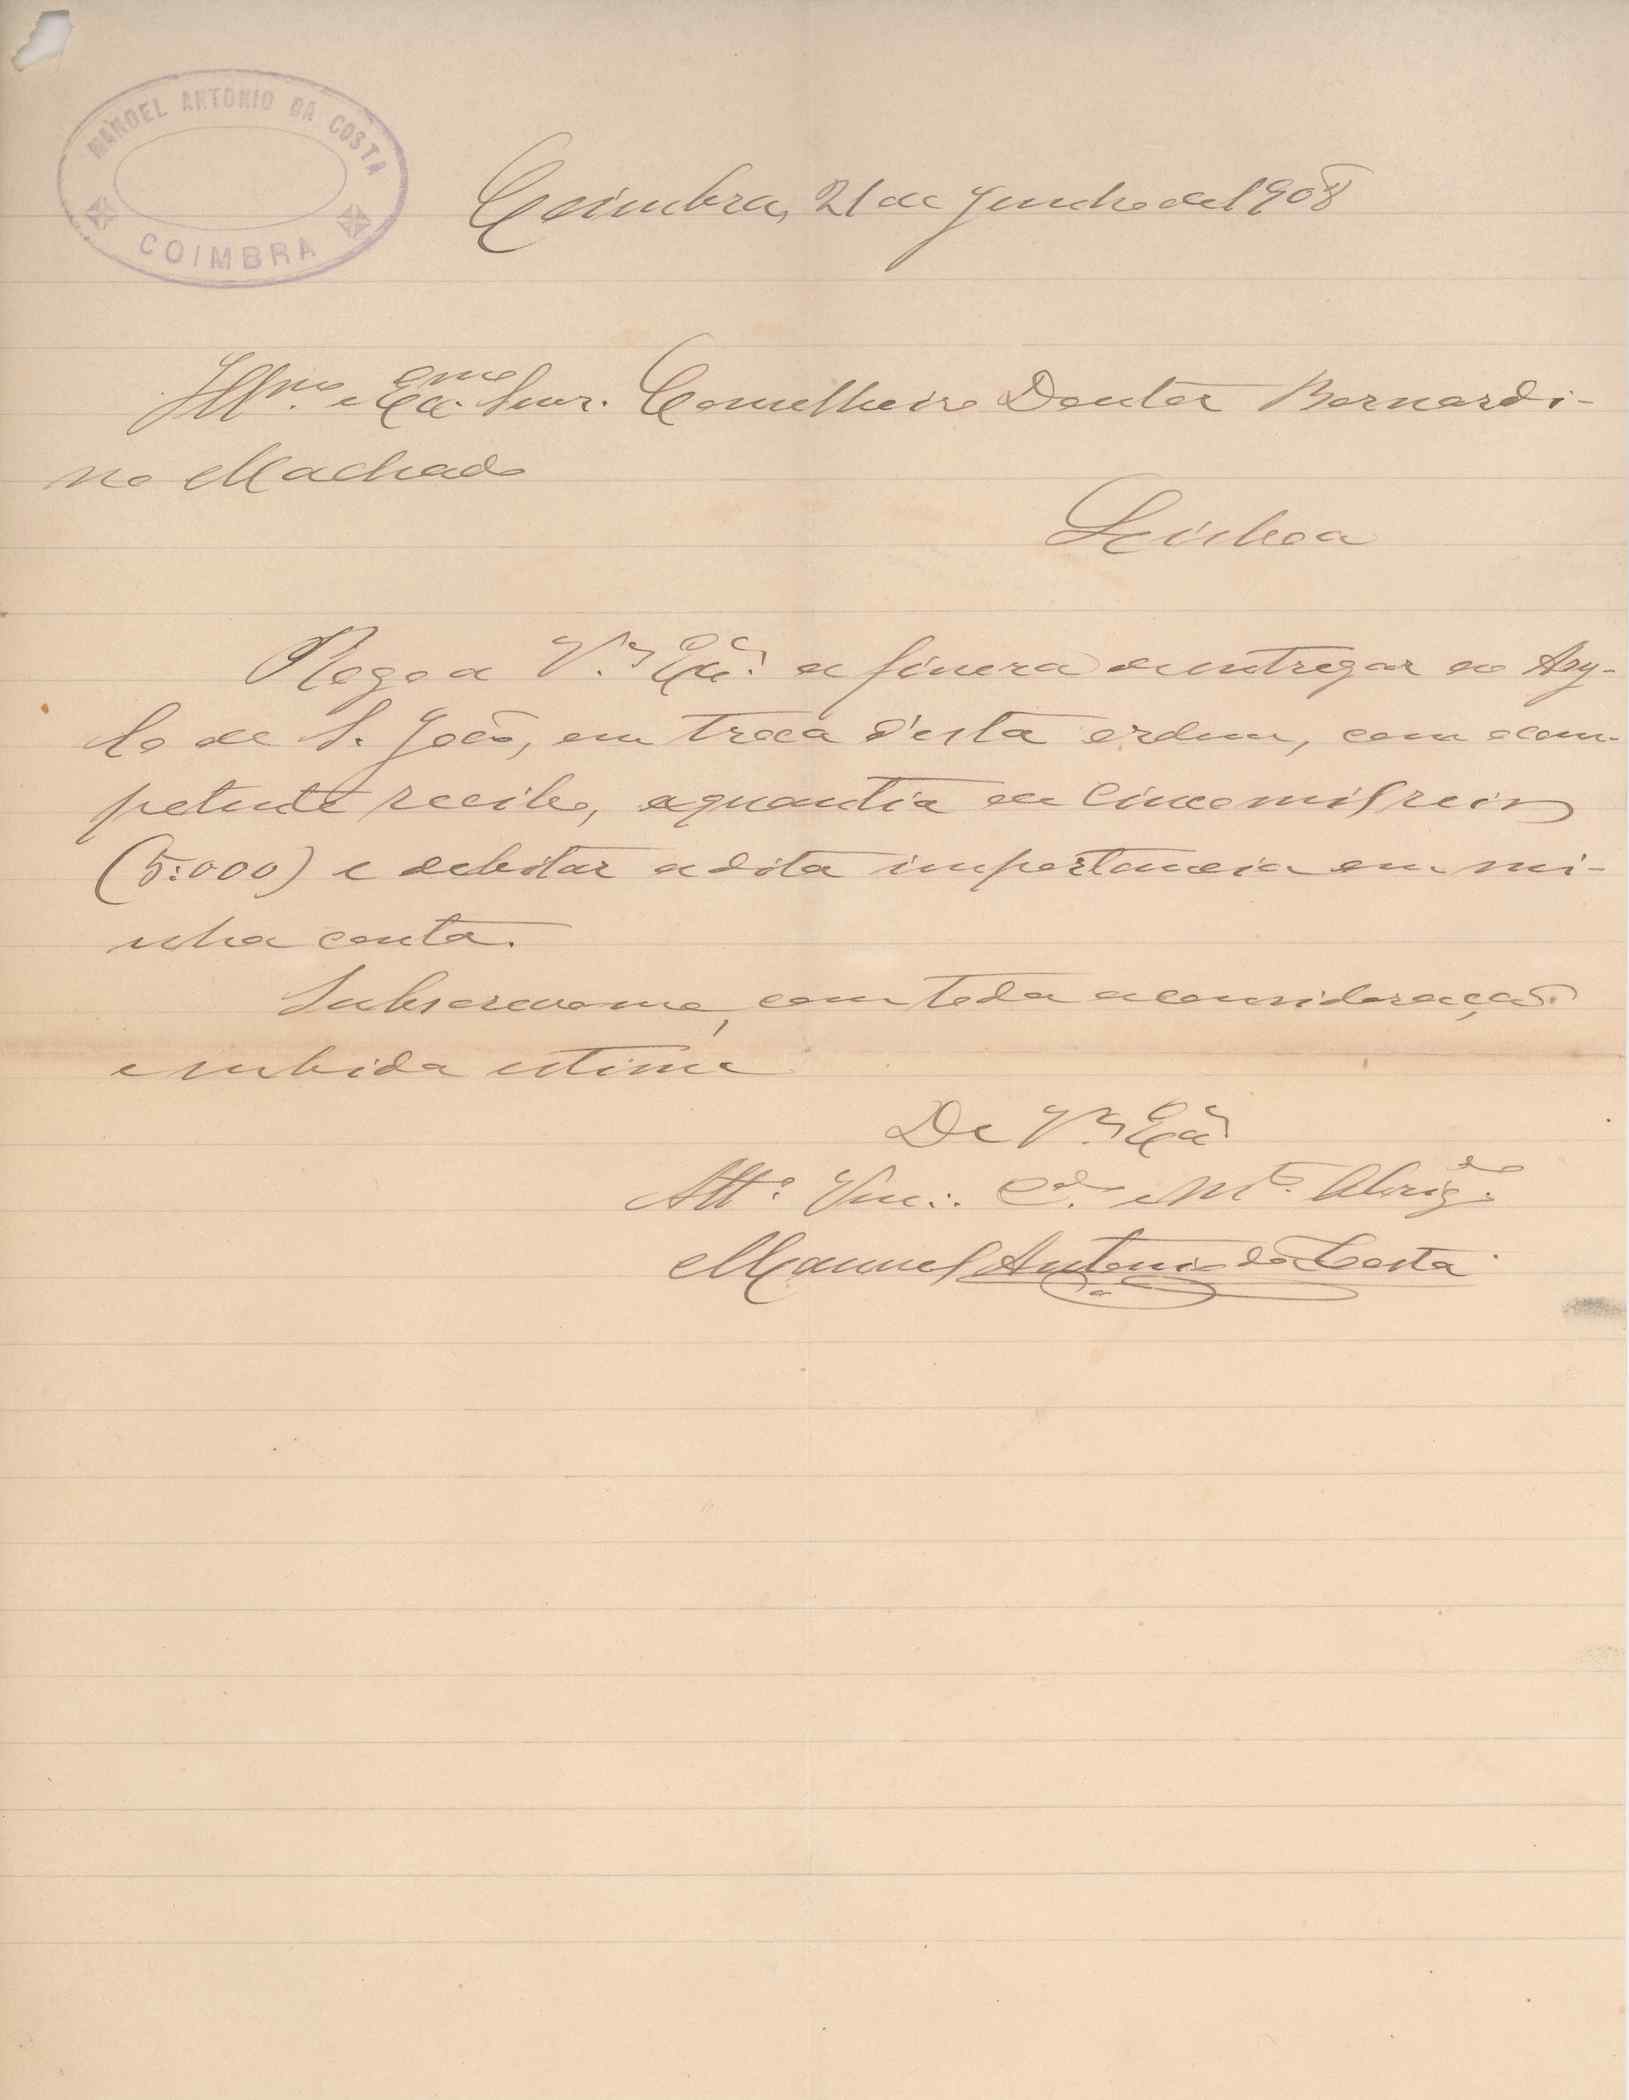 MANOEL ANTONIO DA COSTA
COIMBRA
Coimbra, 21 de Junho de 1908
Illmo. e Exmo. Snr. Conselheiro Doutor Bernardi-
no Machado
Lisboa
Rogo a V.ª Exª. a fineza de entregar ao Asy-
lo de S. João, em troca d'esta ordem, com o com-
petente recibo, a quantia de Cinco mil reis
(5:000) e debitar a dita importancia em mi-
nha conta.
Subscrevo-me, com toda a consideração
e subida estima
De V.ª Exª
Attº. Ven.or C.do e Mto. Obrigdo.
Manuel Antonio da Costa